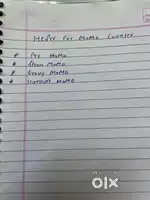 Helper For MoMo Counter
* Fry MoMo
* Steam MoMo
* Gravy MoMo
* MoMo
olx